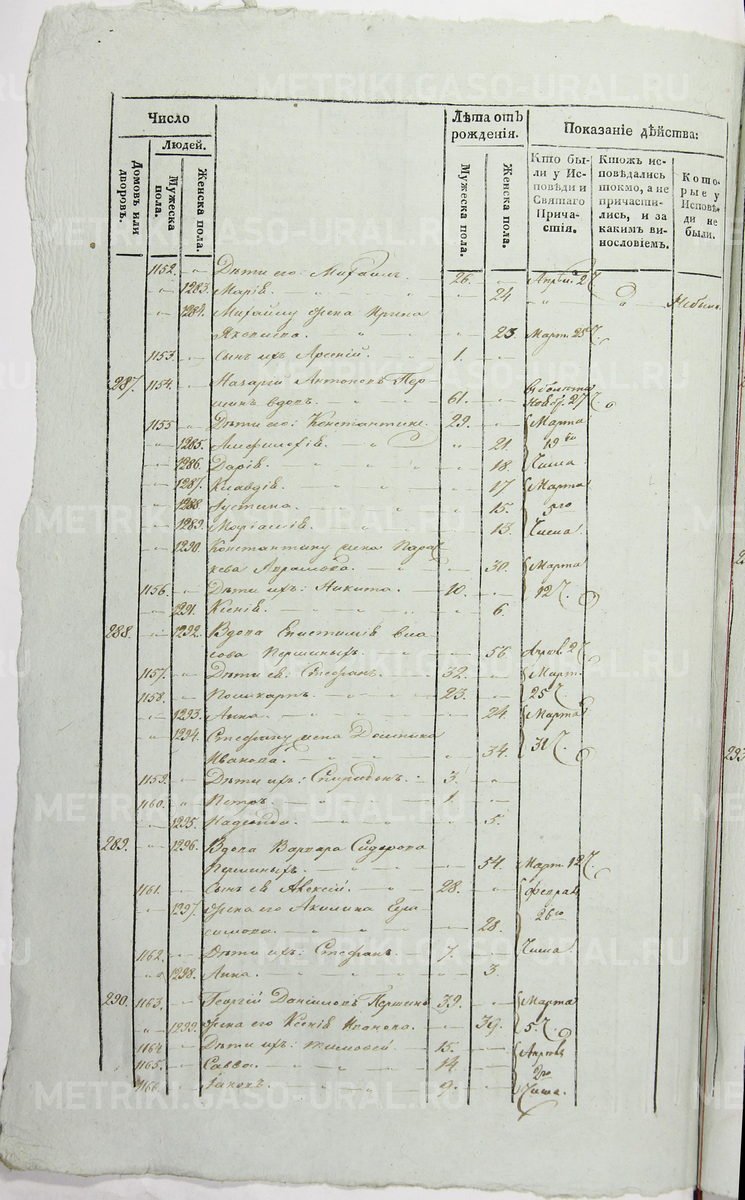 METRIKI.GASO-URAL.RU
Число
Людей.
Домовъ или дворовъ.
Мужеска пола.
Женска пола.
Лѣта отъ рожденія.
Мужеска пола.
Женска пола.
Показаніе дѣйства:
Кто бы-
ли у Ис-
повѣди и
Святаго
Прича-
стія.
Ктожъ ис-
повѣдались
токмо, а не
причасти-
лись, и за
какимъ ви-
нословіемъ.
Кото-
рые у
Исповѣ-
ди не
были.
1152. Дѣти его: Михаилъ. 26. 27
1283. Марія 24
1284. Михаилу жена Ирина
23 Март 25
1153. Сынъ ихъ Арсеній. 1.
287. 1154. Назарій Антоновъ Пер-
шинъ вдовъ. 61. 27
1155 Дѣти его: Константинъ. 29. Марта
1285. 21. 19
1286. Дарія. 18. Числа
1287. Клавдія. 17 Марта
1288 Іустина. 15.
1289. 13. Числа
1290 Константину жена Парас-
кева 30. Марта
1156. Дѣти ихъ: Никита. 10. 12
1291. Ксенія. 6.
288. 1292. Вдова Епистимія Влас-
сова Першиныхъ. 56
1157. Дѣти ея: Стефанъ. 32. Март.
1158. Поликарпъ. 23. 25
1293. Анна. 24. Марта
1294. Стефану жена Домника
Иванова. 34. 31
1159. Дѣти ихъ: Спиридонъ. 3.
1160. Петръ 1.
1295. Надежда. 5.
289. 1296. Вдова Варвара Сидорова
Першиныхъ. 54. Март. 12
1161. Сынъ ея Алексій. 28. Феврал
1297. Жена его Акилина
28. 26
1162. Дѣти ихъ: Стефанъ. 7. Числа
1298. Анна. 3.
290. 1163. Георгій Даніиловъ Першинъ 39. Марта
1299. Жена его Ксенія Иванова. 39. 5.
1164 Дѣти ихъ: Тимофей 15.
1165. Савва. 14
1166. Іаковъ. 9. Числа.